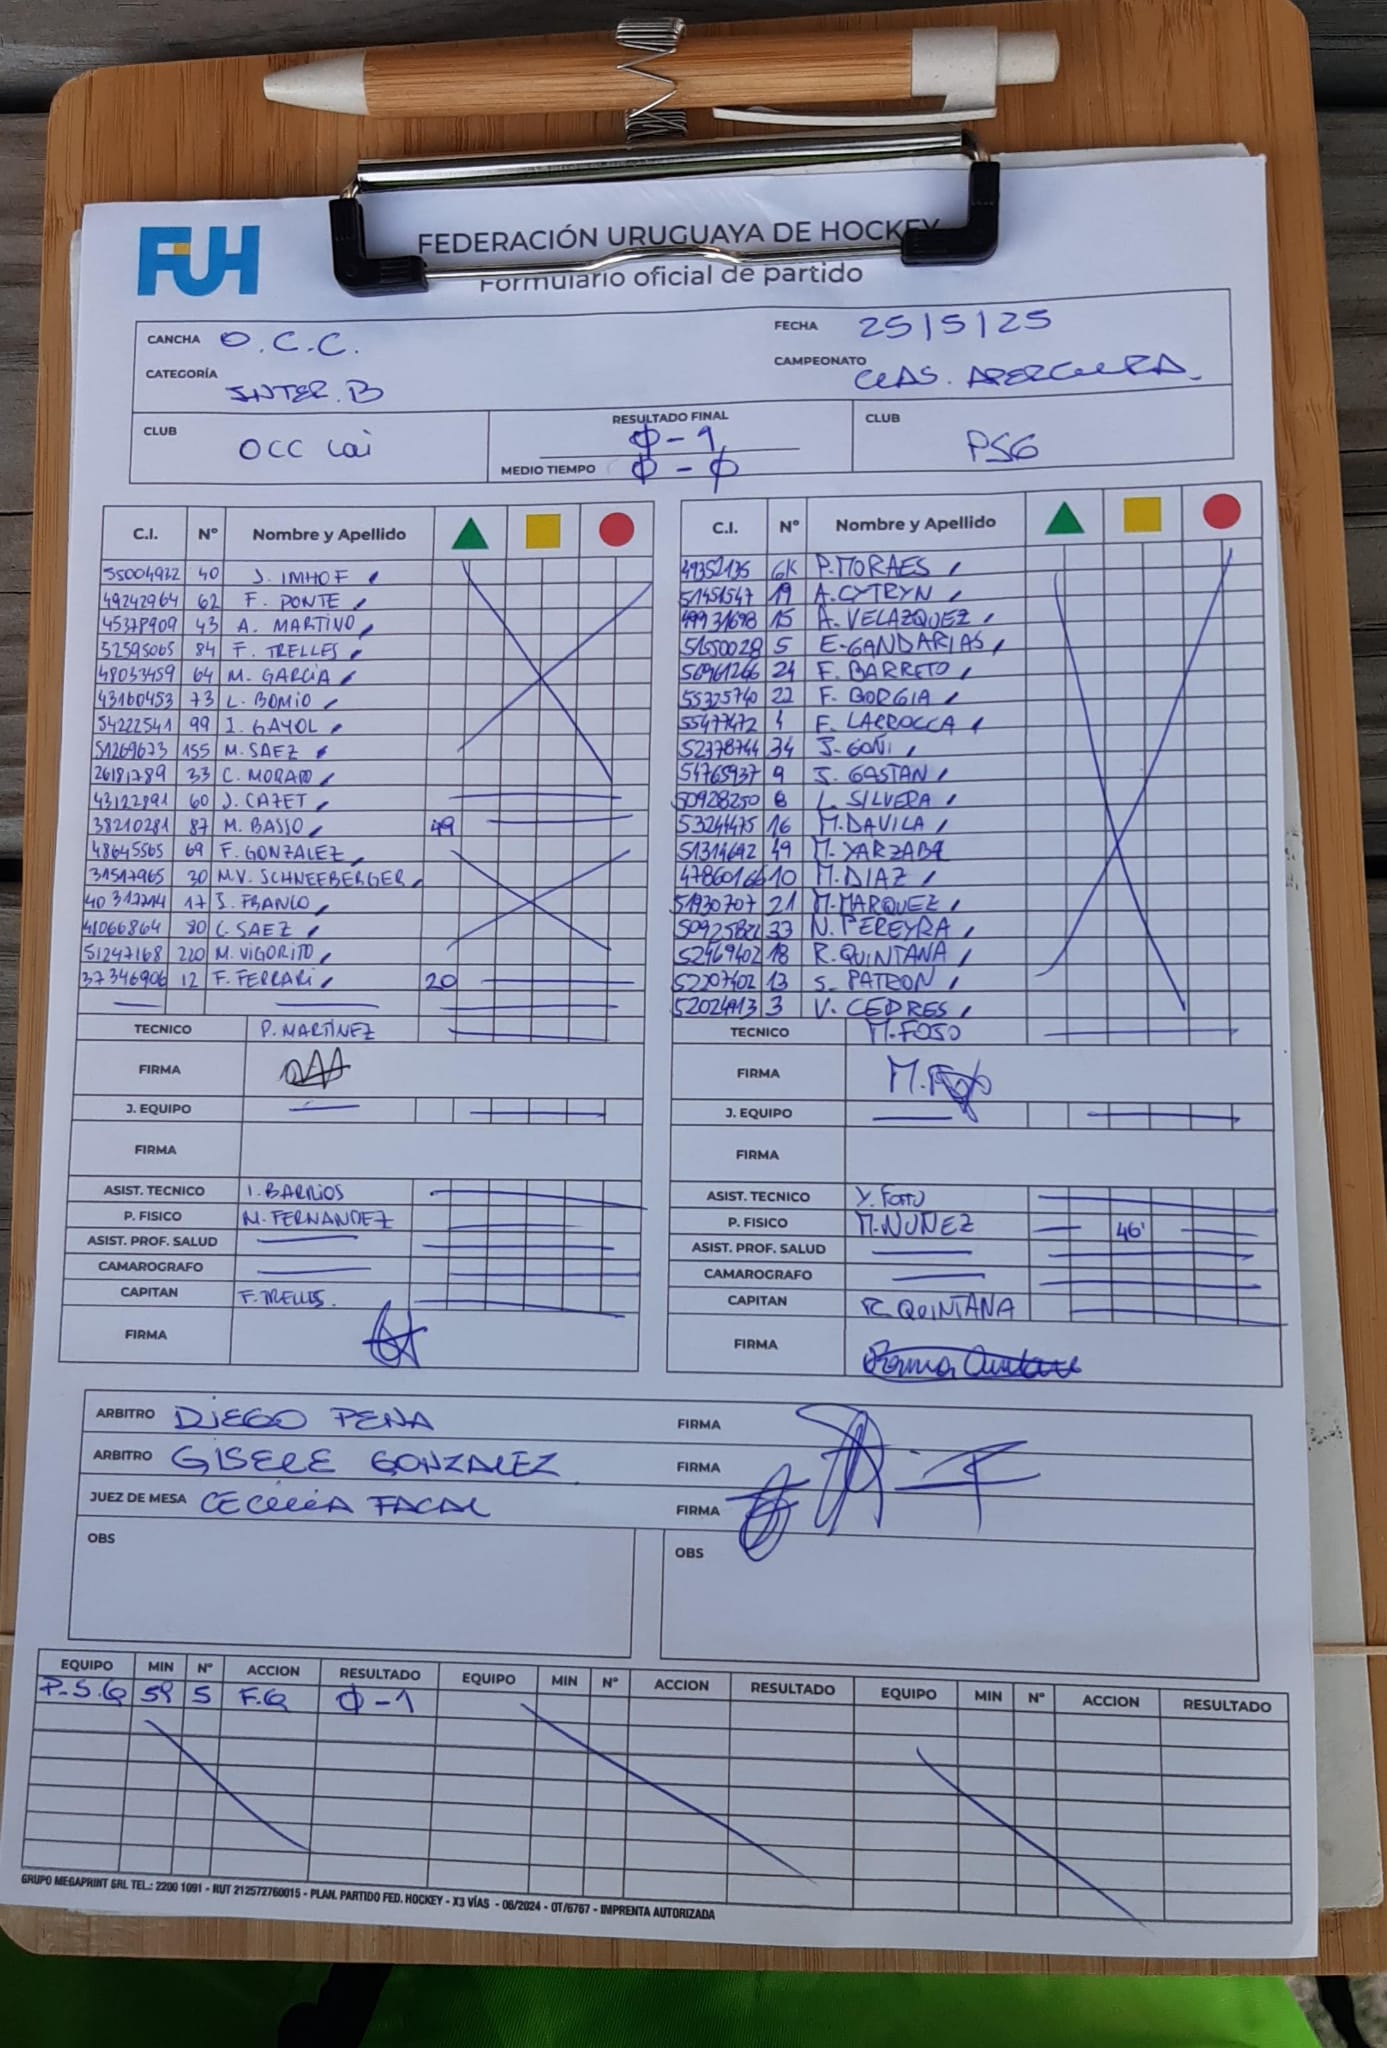 FUH
FEDERACIÓN URUGUAYA DE HOCKEY
Formulario oficial de partido
CANCHA O.C.C.
FECHA 25/5/25
CATEGORÍA INTER. B
CAMPEONATO CLAS. APERTURA.
CLUB OCC Lai
RESULTADO FINAL Ø-1
MEDIO TIEMPO Ø-Ø
CLUB PSG
C.I. Nº Nombre y Apellido
55004922 40 J. IMHOF
49242964 62 F. PONTE
45378909 43 A. MARTINO
52595065 84 F. TRELLES
48033459 64 M. GARCÍA
43160453 73 L. BOMIO
54222541 99 I. GAYOL
51269673 155 M. SAEZ
26181789 33 C. MORADO
43122891 60 J. CAZET
38210281 87 M. BASSO 49
48645565 69 F. GONZALEZ
31517965 30 M.V. SCHNEEBERGER
40312214 17 S. FRANCO
41066864 80 C. SAEZ
51247168 220 M. VIGORITO
37346906 12 F. FERRARI 20
TECNICO P. MARTÍNEZ
FIRMA
J. EQUIPO
FIRMA
ASIST. TECNICO I. BARRIOS
P. FISICO M. FERNANDEZ
ASIST. PROF. SALUD
CAMAROGRAFO
CAPITAN F. TRELLES.
FIRMA
C.I. Nº Nombre y Apellido
49352135 GK P. MORAES
51451547 19 A. CYTRYN
49931698 15 A. VELAZQUEZ
51650028 5 E. GANDARIAS
56961266 24 F. BARRETO
55325740 22 F. BORGIA
55477472 1 F. LARROCCA
52378744 34 J. GOÑI
54765937 9 J. GASTAN
50928250 8 L. SILVERA
53244475 16 M. DAVILA
51314642 49 M. YARZABA
47860166 10 M. DIAZ
51930707 21 M. MARQUEZ
50925822 33 N. PEREYRA
52469402 18 R. QUINTANA
52207402 13 S. PATRON
52024913 3 V. CEDRES
TECNICO M. FOSO
FIRMA
J. EQUIPO
FIRMA
ASIST. TECNICO Y.
P. FISICO M. NUÑEZ 46'
ASIST. PROF. SALUD
CAMAROGRAFO
CAPITAN R. QUINTANA
FIRMA
ARBITRO DIEGO PENA FIRMA
ARBITRO GISELE GONZALEZ FIRMA
JUEZ DE MESA CECILIA FACAL FIRMA
OBS
OBS
EQUIPO MIN Nº ACCION RESULTADO EQUIPO MIN Nº ACCION RESULTADO EQUIPO MIN Nº ACCION RESULTADO
P.S.G 59 5 F.G Ø-1
GRUPO MEGAPRINT SRL TEL.: 2200 1091 - RUT 212572760015 - PLAN. PARTIDO FED. HOCKEY - X3 VÍAS - 06/2024 - OT/6767 - IMPRENTA AUTORIZADA